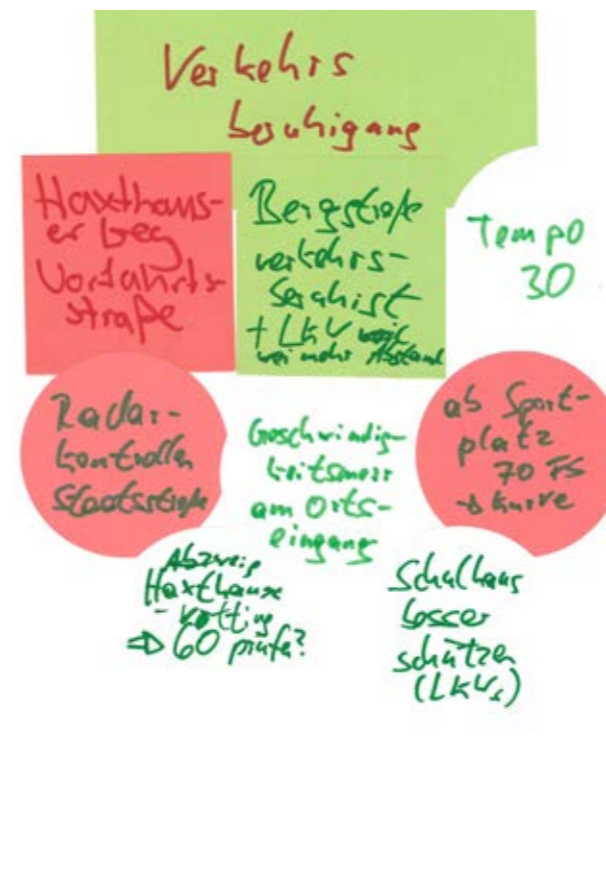 Verkehrs
beruhigung
Haxthaus-
er Weg
Vorfahrts-
straße
Bergstraße
verkehrs-
beruhigt
+ LKW
mehr Abstand
Tempo
30
Radar-
kontrollen
Staatsstraße
Geschwindig-
keitsmess
am Orts-
eingang
ab Sport-
platz
70
→ Kurve
Abzweig
Haxthause
- Vötting
⇒ 60 prüfen?
Schulhaus
besser
schützen
(LKWs)